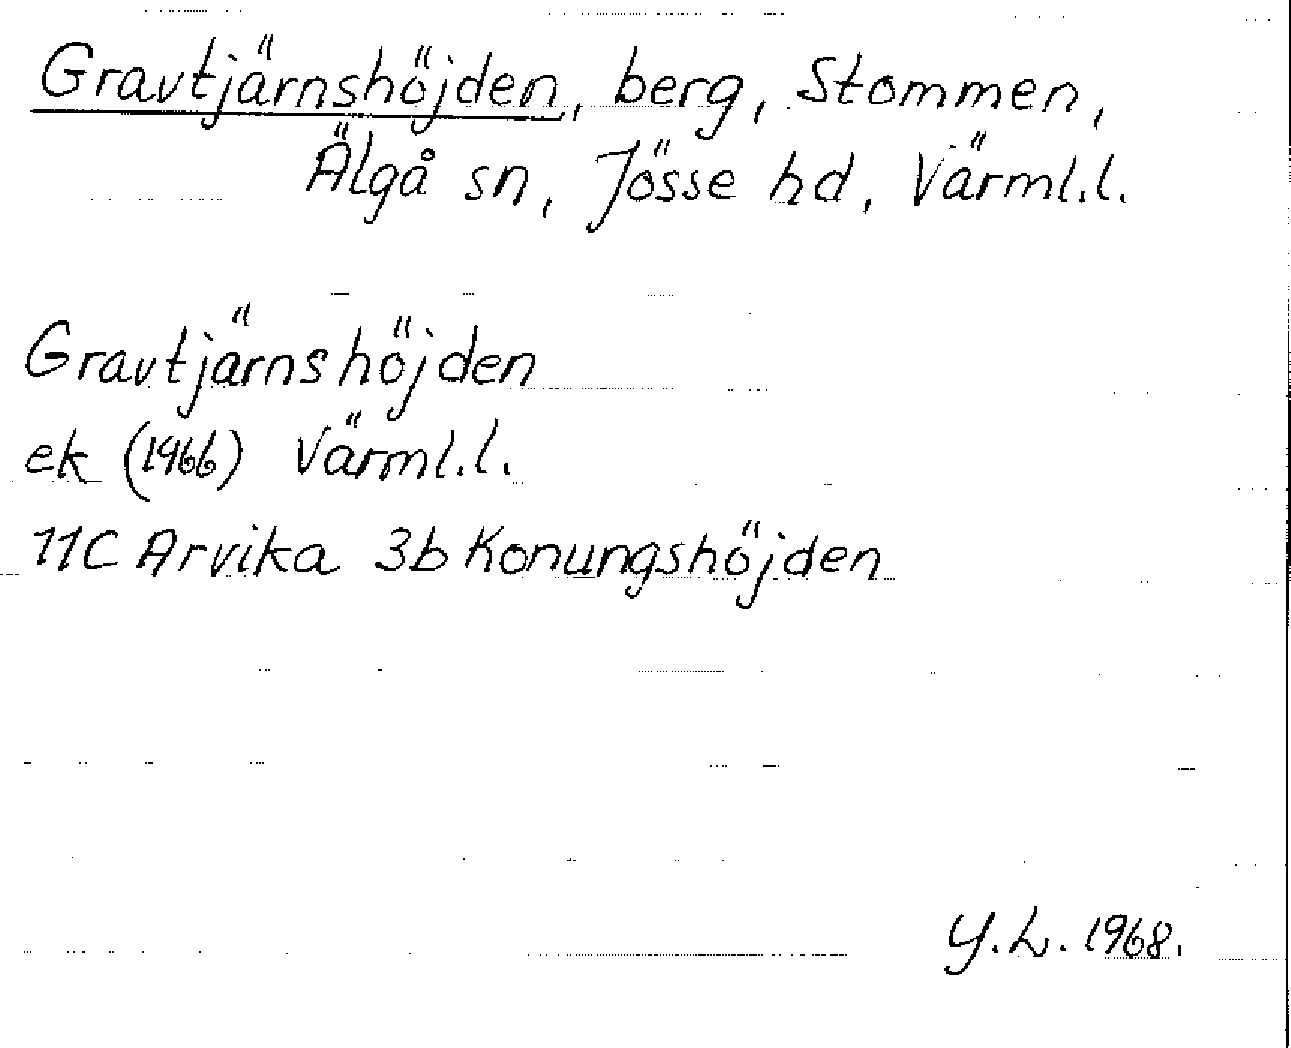 Gravtjärnshöjden, berg, Stommen,
Älgå sn, Jösse hd, Värml.l.
Gravtjärnshöjden
ek (1966) Värml.l.
11C Arvika 3b Konungshöjden
Y.L. 1968.